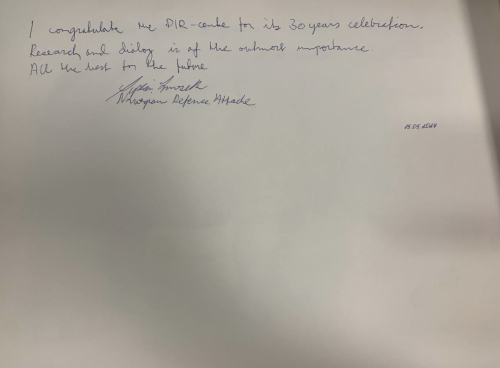 I congratulate the PIR-center for its 30 years celebration.
Research and dialog is of the outmost importance.
All the best for the future
Norwegian Defence Attaché